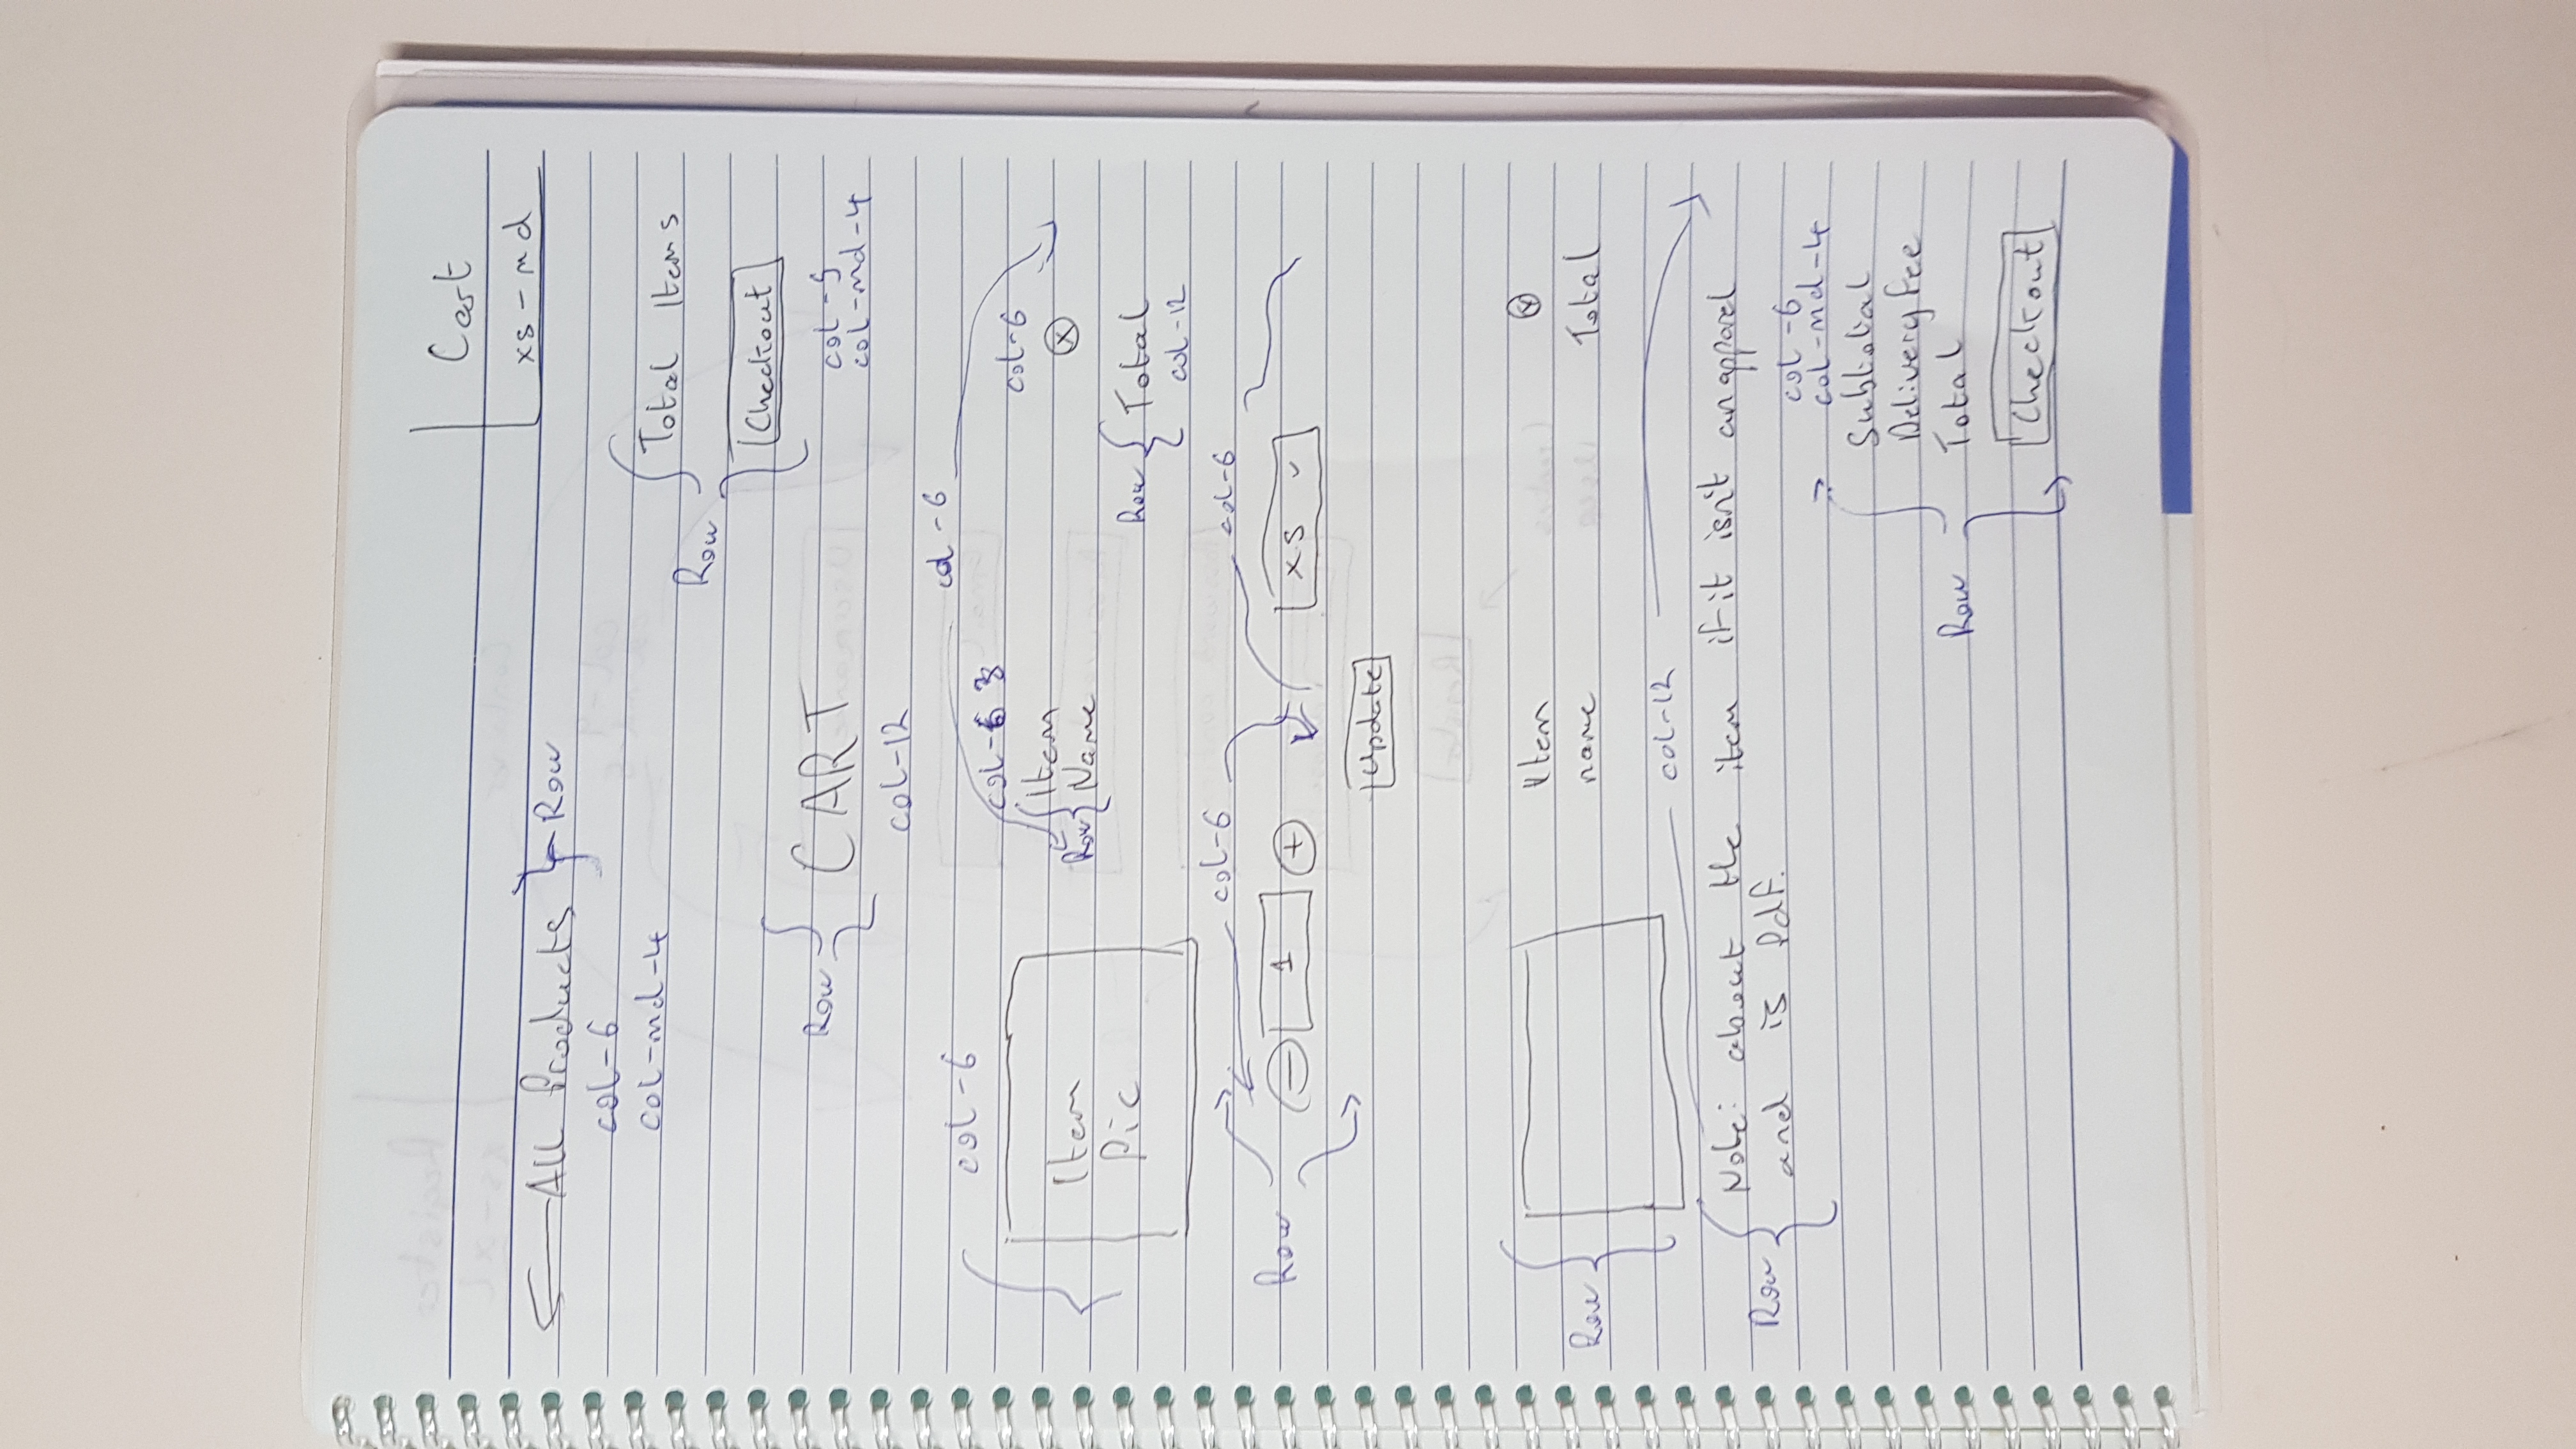 Cart
xs - md
← All Products } Row
col-6
col-md-4
Total Items
Row
Checkout
Row { CART
col-5
col-md-4
col-12
col-6
col-6
col-6 3
col-6
Item
Pic
Row { Item
Name
ⓧ
Row { Total
col-12
col-6
col-6
Row
- 1 +
xs ⌄
Update
Row
Item
name
ⓧ
Total
col-12
Row { Note: about the item if it isn't an apparel
and is Pdf.
col-6
col-md-4
Subtotal
Delivery Fee
Row
Total
Checkout